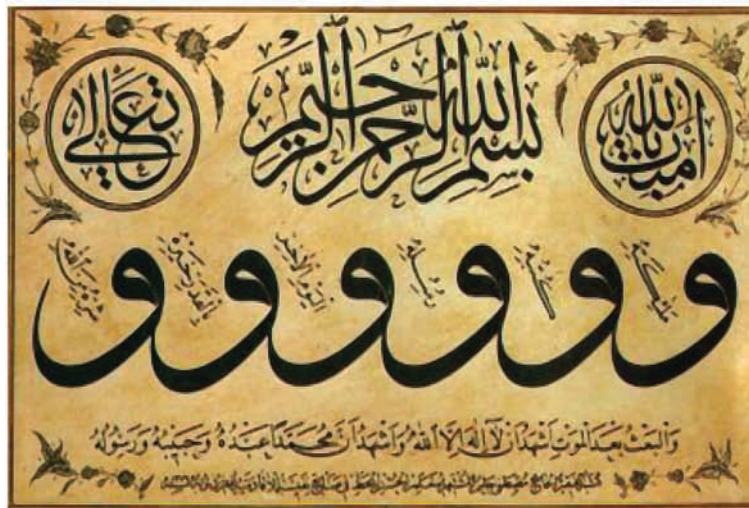 بسم الله الرحمن الرحيم
امنت بالله
تعالى
و ملئكته و كتبه و رسله و اليوم الآخر و بالقدر خيره و شره من الله
والبعث بعد الموت اشهد ان لا اله الا الله واشهد ان محمدا عبده وحبيبه ورسوله